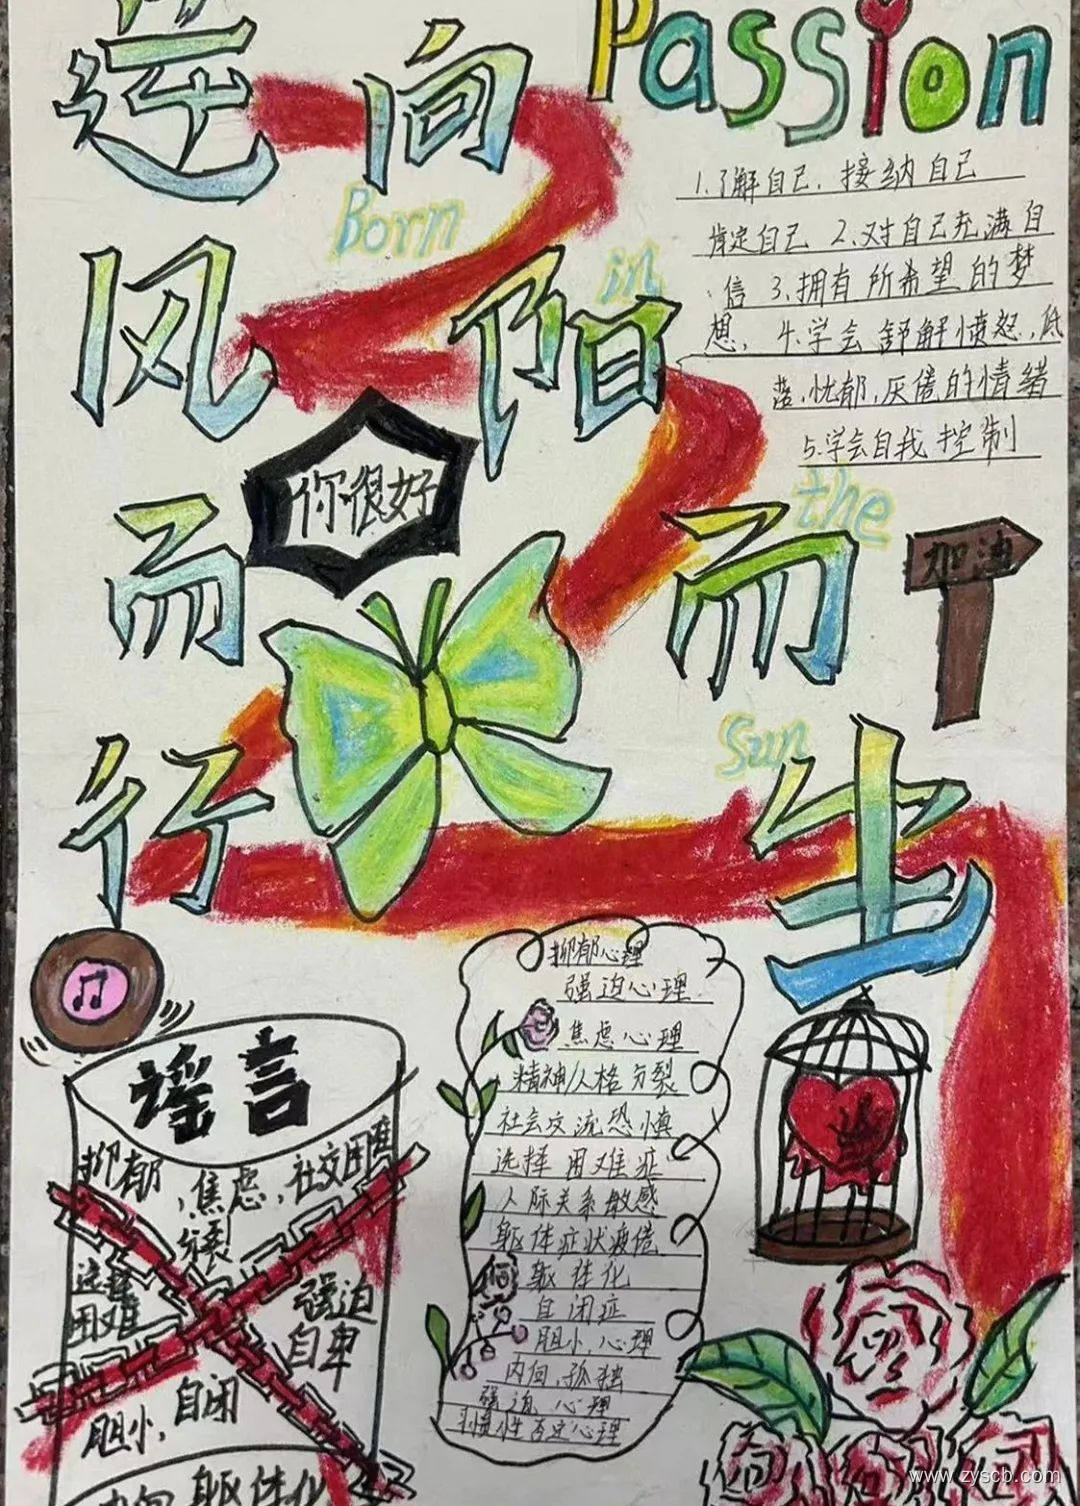 Passion
逆向
风阳
而而
行生
Born
in
the
Sun
1.了解自己，接纳自己
肯定自己 2.对自己充满自
信 3.拥有所希望的梦
想，4.学会舒解愤怒，低
落，忧郁，厌倦的情绪
5.学会自我控制
你很好
加油
抑郁心理
强迫心理
焦虑心理
精神人格分裂
社会交流恐惧
选择困难症
人际关系敏感
躯体症状疲倦
躯体化
自闭症
胆小心理
内向，孤独
强迫心理
习惯性否定心理
谣言
抑郁，焦虑，社交困难
分裂
选择
困难
强迫
自卑
胆小，自闭
内向 躯体化
www.zyscb.com